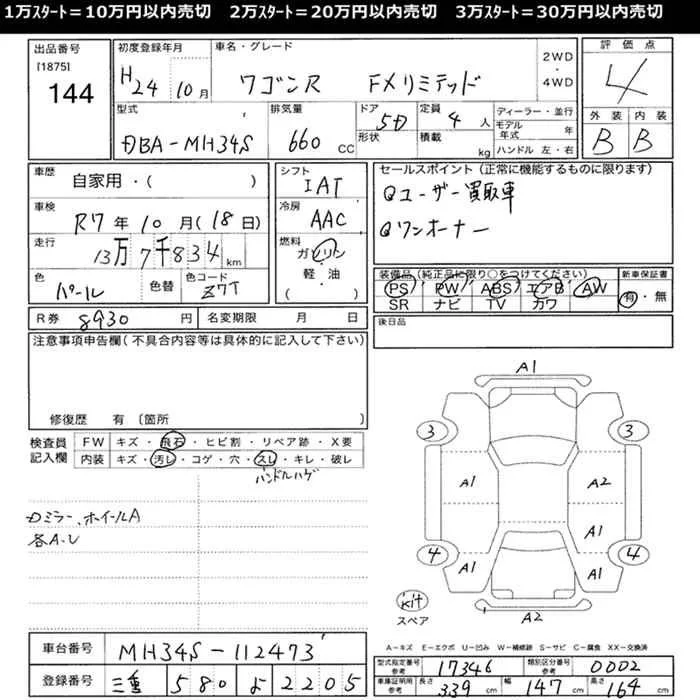 1万スタート＝10万円以内売切　2万スタート＝20万円以内売切　3万スタート＝30万円以内売切
出品番号
[1875]
144
初度登録年月
H24 10月
車名・グレード
ワゴンR FXリミテッド
2WD
・
4WD
評価点
4
型式
DBA-MH34S
排気量
660 CC
ドア
5D
形状
定員
4 人
積載
kg
ディーラー・並行
モデル年式 年
ハンドル 左・右
外装 内装
B B
車歴
自家用・( )
車検
R7年10月(18日)
走行
13万7千834km
色
パール
色替
色コード
Z7T
シフト
IAT
冷房
AAC
燃料
ガソリン
・
軽・油
( )
セールスポイント(正常に機能するものに限ります)
◎ユーザー買取車
◎ワンオーナー
装備品(純正品に限り○をつけてください)
PS PW ABS エアB AW
SR ナビ TV カワ
新車保証書
有・無
R券 8930 円
名変期限 月 日
後日品
注意事項申告欄(不具合内容等は具体的に記入して下さい)
修復歴 有 [箇所 ]
検査員
記入欄
FW キズ・飛石・ヒビ割・リペア跡・X要
内装 キズ・汚レ・コゲ・穴・スレ・キレ・破レ
ハンドルハゲ
Dミラー、ホイールA
各A-U
A1
3 3
A1 A2
A1
4 4
A1 A1
A2
Kit
スペア
A-キズ E-エクボ U-凹み W-補修跡 S-サビ C-腐食 XX-交換済
車台番号 MH34S-112473
登録番号 三重 580 よ 2205
型式指定番号 参考 17346
類別区分番号 参考 0002
車庫証明用 参考 長さ 339 cm 幅 147 cm 高さ 164 cm